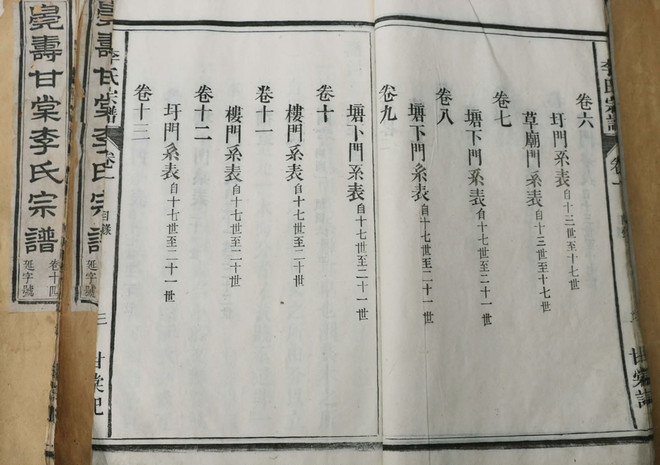 李氏宗譜 卷一
卷六
圩門系表 自十三世至十七世
草廟門系表 自十三世至十七世
卷七
塘下門系表 自十七世至二十一世
卷八
塘下門系表 自十七世至二十一世
卷九
塘下門系表 自十七世至二十一世
卷十
樓門系表 自十七世至二十一世
卷十一
樓門系表 自十七世至二十世
卷十二
圩門系表 自十七世至二十一世
卷十三
三
壽甘棠李氏宗譜
延字號
壽甘棠李氏宗譜
卷十四
延字號